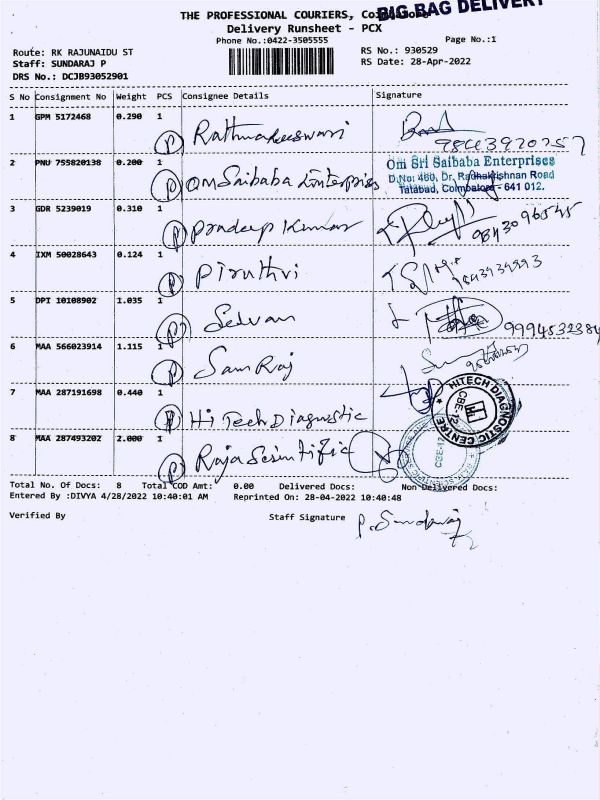 THE PROFESSIONAL COURIERS, Coimbatore
BIG BAG DELIVERY
Delivery Runsheet - PCX
Phone No.:0422-3505555
Page No.:1
Route: RK RAJUNAIDU ST
RS No.: 930529
Staff: SUNDARAJ P
RS Date: 28-Apr-2022
DRS No.: DCJB93052901
S No Consignment No Weight PCS Consignee Details Signature
1 GPM 5172468 0.290 1 P Rathnakeeswari
2 PNU 755820138 0.200 1 P Om Saibaba Enterprises
Om Sri Saibaba Enterprises
D.No: 460, Dr. Radhakrishnan Road
Tatabad, Coimbatore - 641 012.
3 GDR 5239019 0.310 1 P Pradeep Kumar
4 IXM 50028643 0.124 1 P Piruthvi
5 DPI 10108902 1.035 1 P Selvan 9994532384
6 MAA 566023914 1.115 1 P Sam Raj
7 MAA 287191698 0.440 1 P Hi Tech Diagnostic
HITECH DIAGNOSTIC CENTRE
CBE-12
8 MAA 287493202 2.000 1 P Raja Scientific
CBE-12
Total No. Of Docs: 8 Total COD Amt: 0.00 Delivered Docs: Non Delivered Docs:
Entered By :DIVYA 4/28/2022 10:40:01 AM Reprinted On: 28-04-2022 10:40:48
Verified By Staff Signature P. Sundaraj